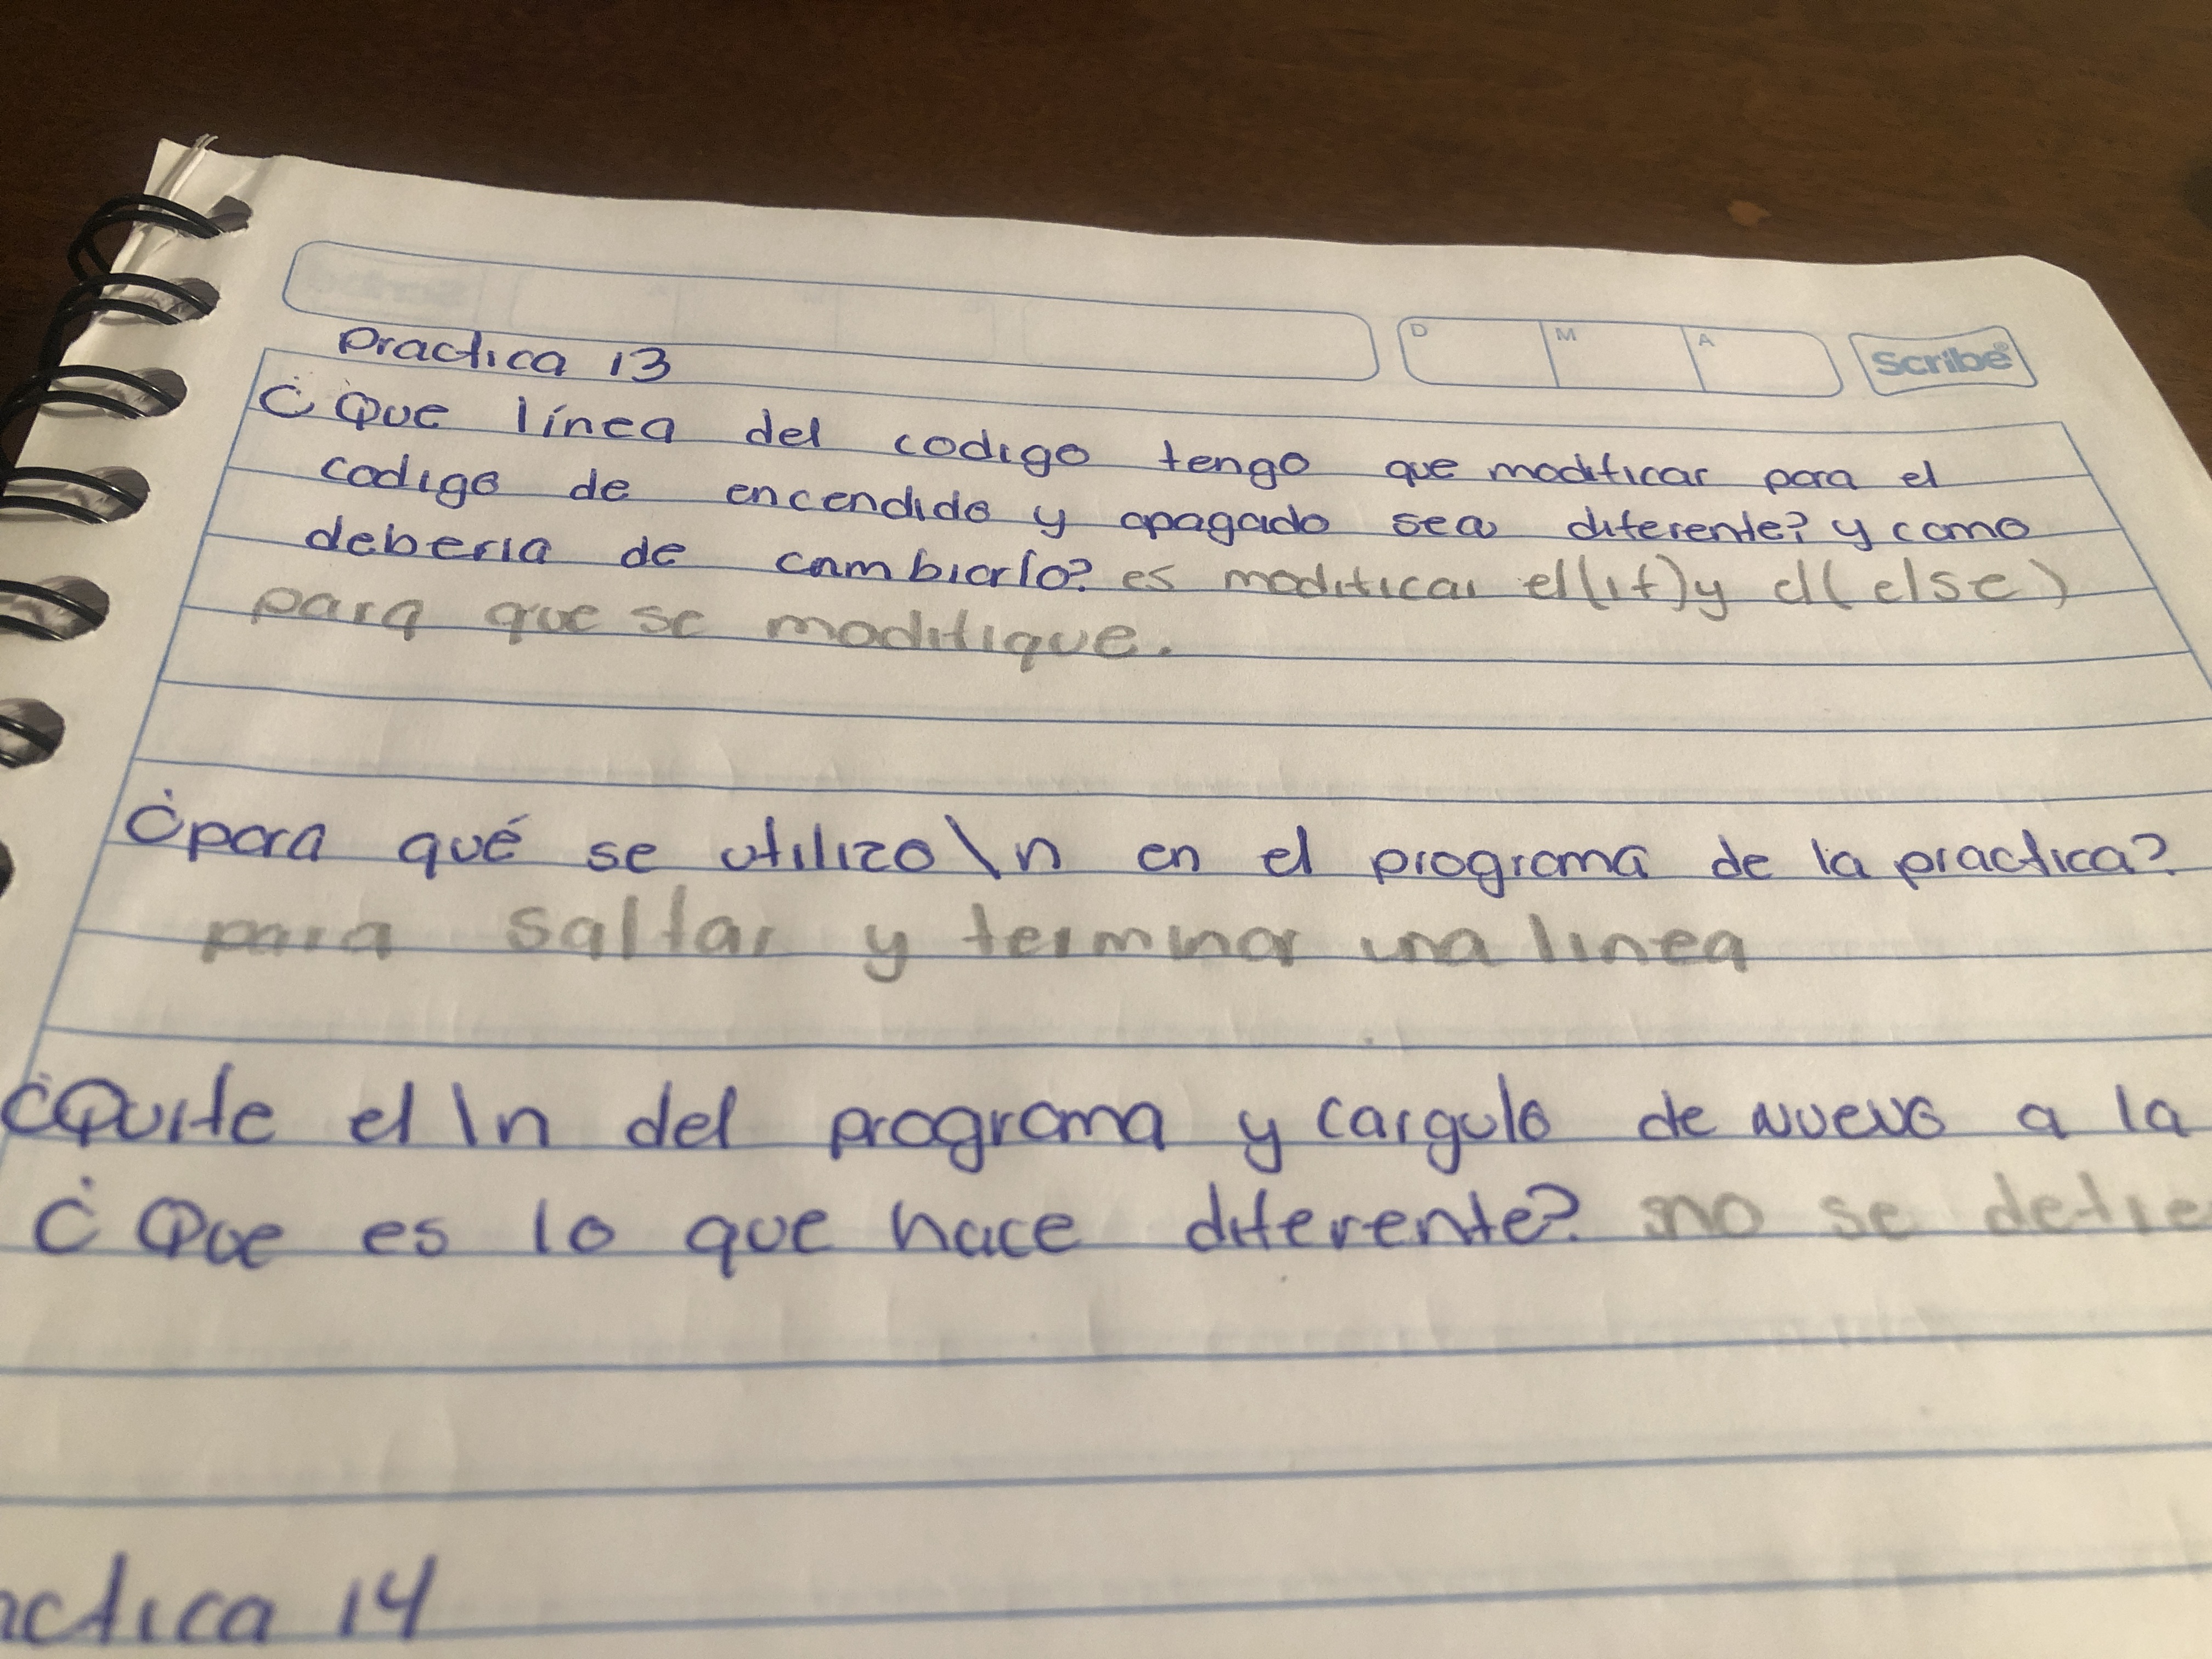 D M A Scribe®
Practica 13
¿Que línea del codigo tengo que modificar para el
codigo de encendido y apagado sea diferente? y como
deberia de cambiarlo? es modificar el(if)y el(else)
para que se modifique.
¿para qué se utilizo \n en el programa de la practica?
para saltar y terminar una linea
¿Quite el \n del programa y cargulo de nuevo a la
¿Que es lo que hace diferente? no se detie
actica 14